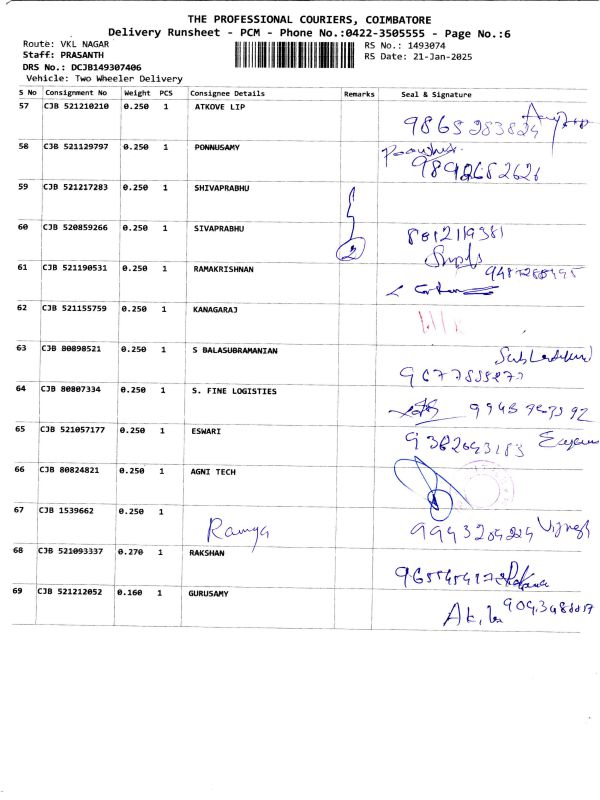 THE PROFESSIONAL COURIERS, COIMBATORE
Delivery Runsheet - PCM - Phone No.:0422-3505555 - Page No.:6
Route: VKL NAGAR RS No.: 1493074
Staff: PRASANTH RS Date: 21-Jan-2025
DRS No.: DCJB149307406
Vehicle: Two Wheeler Delivery
S No Consignment No Weight PCS Consignee Details Remarks Seal & Signature
57 CJB 521210210 0.250 1 ATKOVE LIP
9865283824
58 CJB 521129797 0.250 1 PONNUSAMY
59 CJB 521217283 0.250 1 SHIVAPRABHU
60 CJB 520859266 0.250 1 SIVAPRABHU
2
61 CJB 521190531 0.250 1 RAMAKRISHNAN
62 CJB 521155759 0.250 1 KANAGARAJ
63 CJB 80898521 0.250 1 S BALASUBRAMANIAN
64 CJB 80807334 0.250 1 S. FINE LOGISTIES
65 CJB 521057177 0.250 1 ESWARI
66 CJB 80824821 0.250 1 AGNI TECH
67 CJB 1539662 0.250 1
Ramya 9943204224 Vignesh
68 CJB 521093337 0.270 1 RAKSHAN
69 CJB 521212052 0.160 1 GURUSAMY